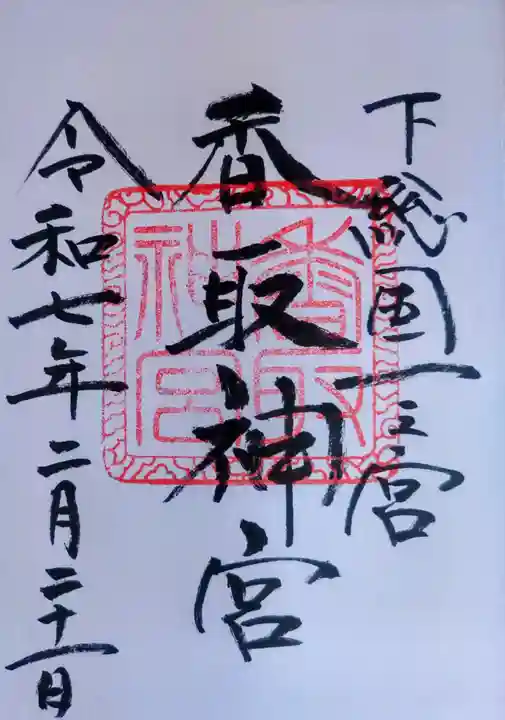 下総国一之宮
香取神宮
令和七年二月二十一日
香取神宮